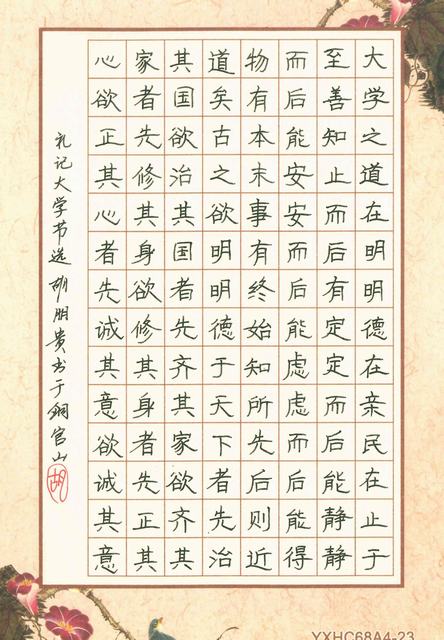 大学之道在明明德在亲民在止于
至善知止而后有定定而后能静静
而后能安安而后能虑虑而后能得
物有本末事有终始知所先后则近
道矣古之欲明明德于天下者先治
其国欲治其国者先齐其家欲齐其
家者先修其身欲修其身者先正其
心欲正其心者先诚其意欲诚其意
礼记大学节选 胡朋贵书于铜官山
胡
YXHC68A4-23